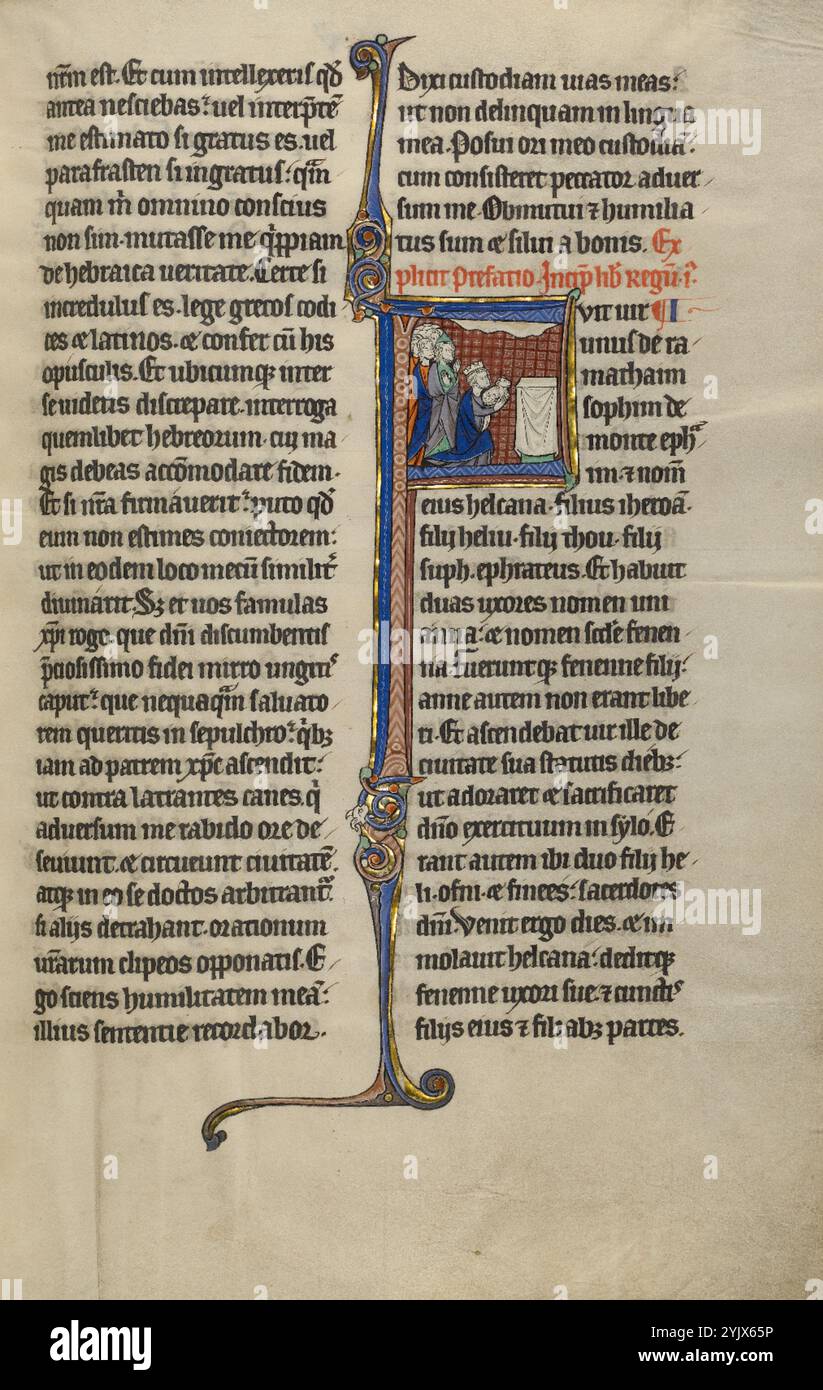 nem est. Et cum intellexeris qd̄
antea nesciebas: uel interp̄tē
me estimato si gratus es. uel
parafrasten si ingratus: qm̄
quam m̄ omnino conscius
non sim. mutasse me q̄ppiam
de hebraica ueritate. Certe si
incredulus es. lege grecos codi
ces ⁊ latinos. ⁊ confer cū his
opusculis. Et ubicumq; inter
se uideris discrepare. interroga
quemlibet hebreorum. cuj ma
gis debeas accōmodare fidem.
Et si nr̄a firmauerit: puto qd̄
eum non estimes coniectorem:
ut in eodem loco mecū similit̄
diuinarit. Sꝫ et uos famulas
xp̄i rogo. que dn̄i discumbentis
p̄ciosissimo fidei mirro ungitis
caput: que nequaqm̄ saluato
rem queritis in sepulchro: q̄bꝫ
iam ad patrem xp̄c ascendit:
ut contra latrantes canes. q̄
aduersum me rabido ore de
seuiunt. ⁊ circueunt ciuitatē.
atq; in eo se doctos arbitrant̄.
si alijs detrahant. orationum
ur̄arum clipeos opponatis. E
go sciens humilitatem meā:
illius sententie recordabor.
Dixi custodiam uias meas:
ut non delinquam in lingua
mea. Posui ori meo custodiā:
cum consisteret peccator aduer
sum me. Obmutui ⁊ humilia
tus sum ⁊ silui a bonis. Ex
plicit prefatio. Incip̄ lib̄ Regū. i.
F
vit uir
unus de ra
mathaim
sophim de
monte eph̄
im. ⁊ nom̄
eius helcana. filius iheroā.
filij heliu. filij thou. filij
suph. ephrateus. Et habuit
duas uxores nomen uni
anna: ⁊ nomen scd̄e fenen
na. Fueruntq; fenenne filij:
anne autem non erant libe
ri. Et ascendebat uir ille de
ciuitate sua statutis diebꝫ:
ut adoraret ⁊ sacrificaret
dn̄o exercituum in sylo. E
rant autem ibi duo filij he
li. ofni. ⁊ finees: sacerdotes
dn̄i. Venit ergo dies. ⁊ im
molauit helcana: deditq;
fenenne uxori sue. ⁊ cunctis
filijs eius ⁊ filiabꝫ partes.
alamy
a
Image ID: 2YJX65P
www.alamy.com